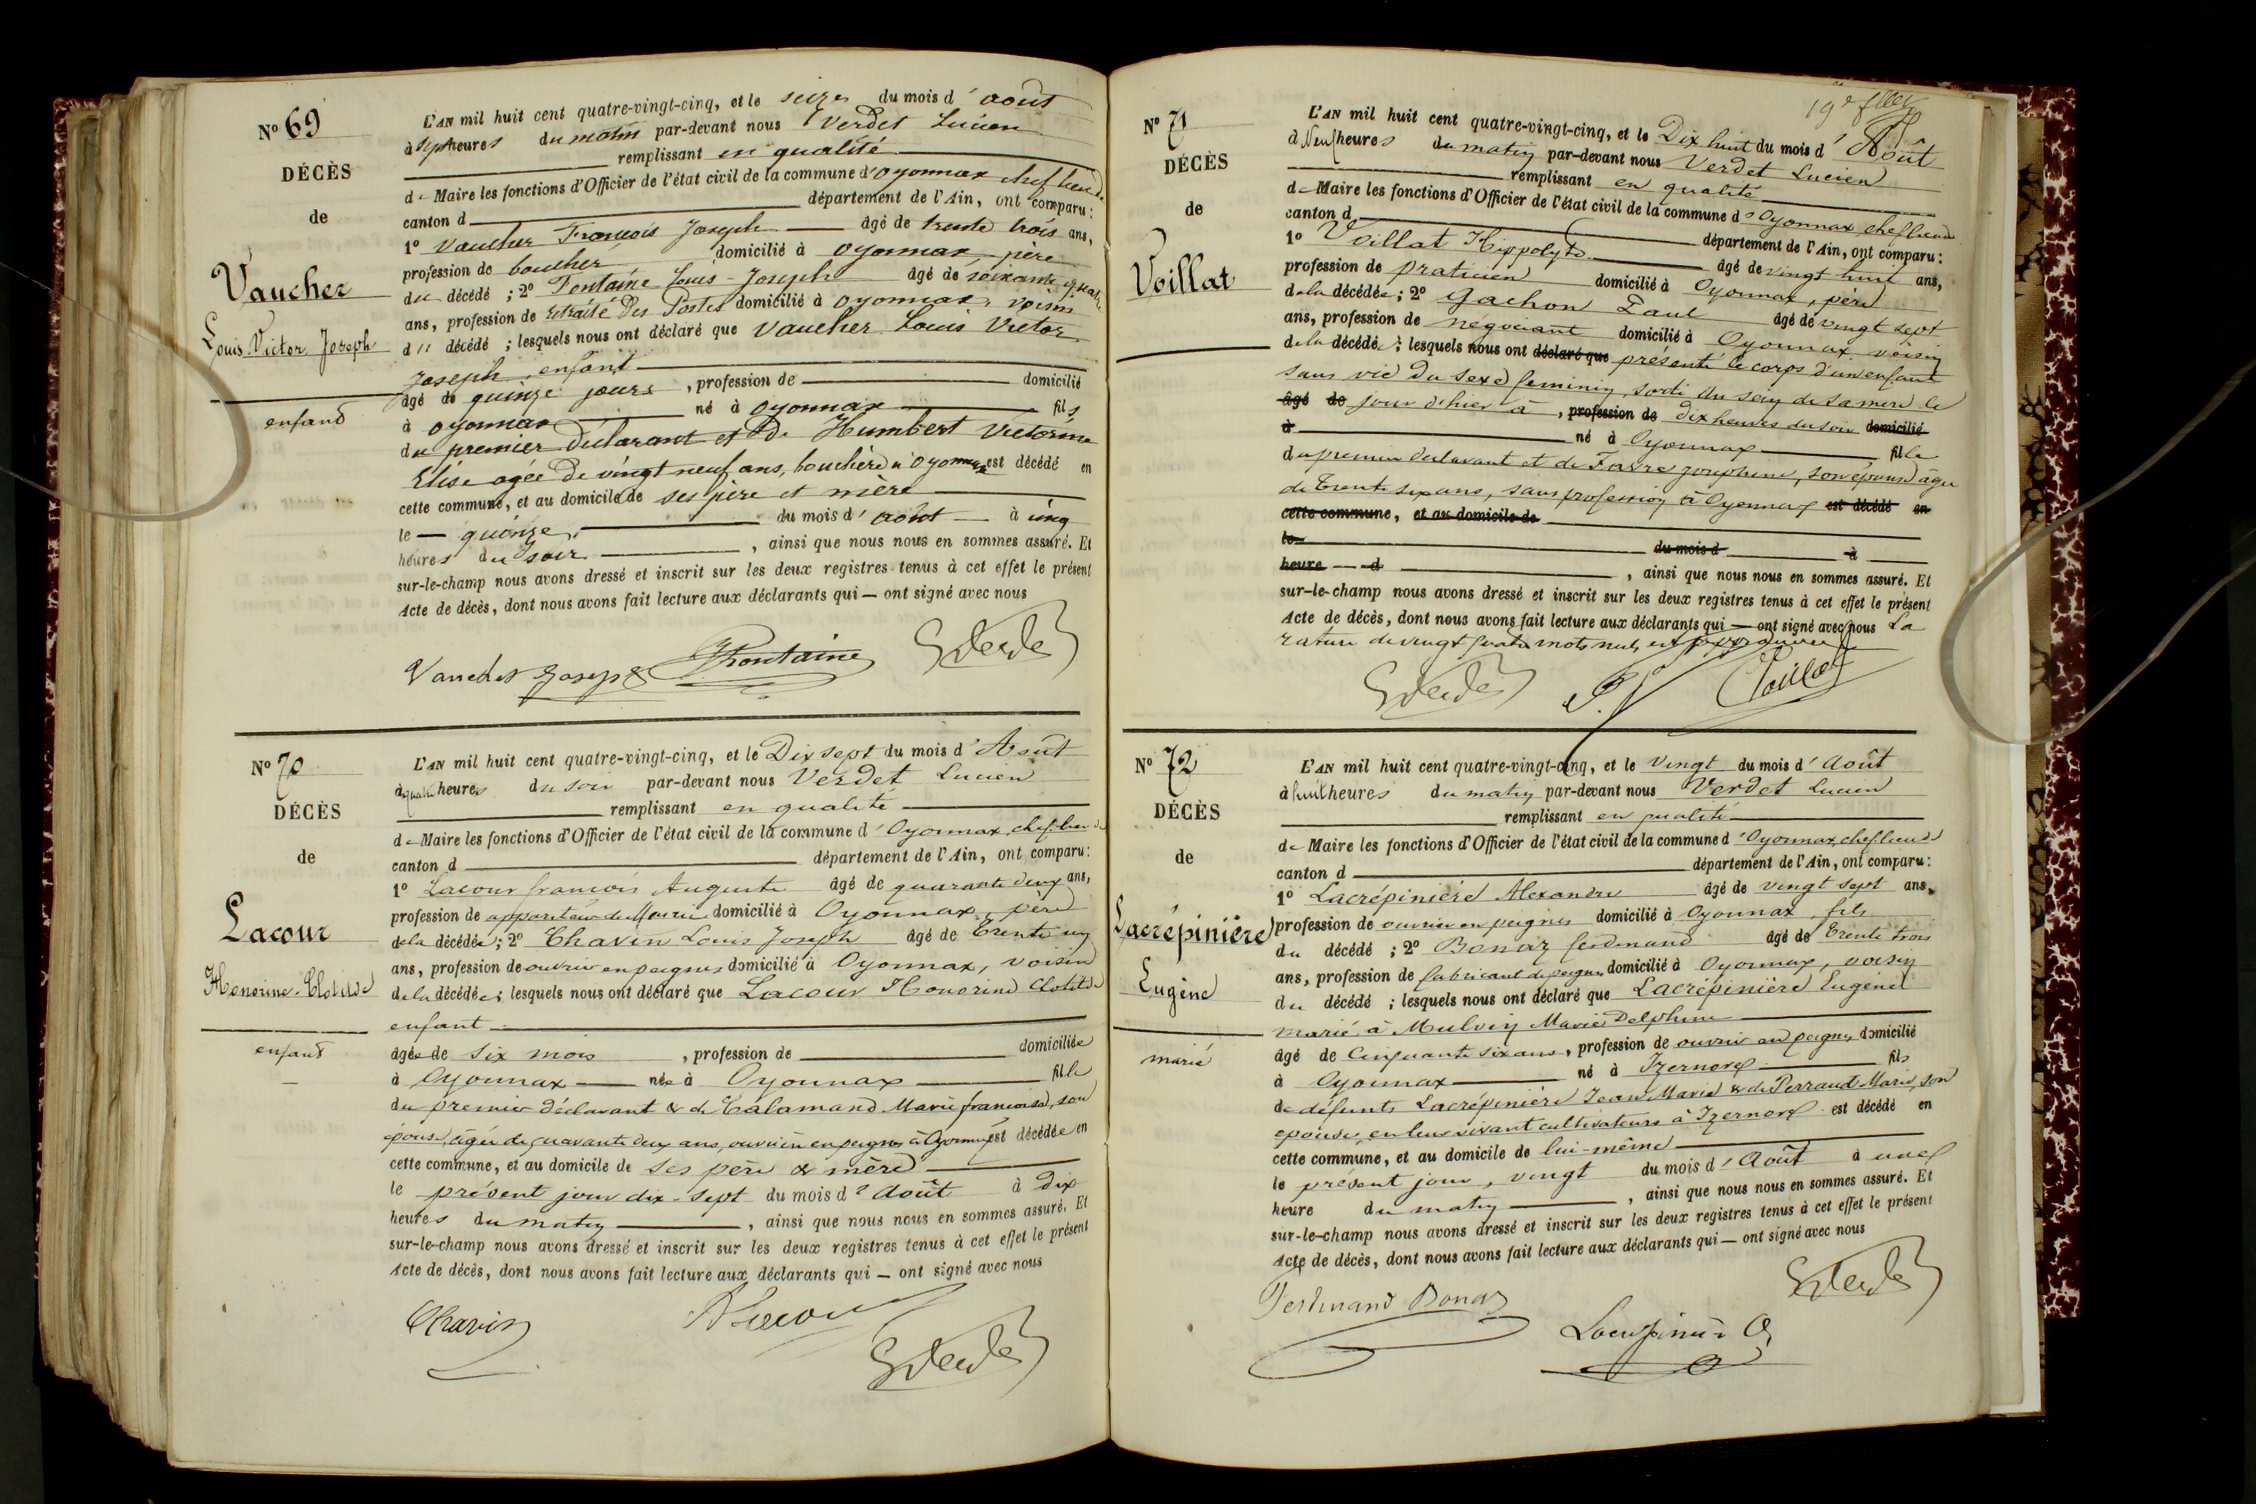 N° 69
DÉCÈS
de
Vaucher
Louis Victor Joseph
enfant
L'AN mil huit cent quatre-vingt-cinq, et le seize du mois d'août
à sept heures du matin par-devant nous Verdet Lucien
remplissant en qualité
de Maire les fonctions d'Officier de l'état civil de la commune d'Oyonnax chef lieu de
canton d département de l'Ain, ont comparu:
1° Vaucher François Joseph âgé de trente trois ans,
profession de boucher domicilié à Oyonnax, père
du décédé ; 2° Fontaine Louis-Joseph âgé de soixante quatre
ans, profession de retraité des Postes domicilié à Oyonnax, voisin
du décédé ; lesquels nous ont déclaré que Vaucher Louis Victor
Joseph, enfant
âgé de quinze jours, profession de domicilié
à Oyonnax né à Oyonnax fils
du premier déclarant et de Humbert Victorine
Elise agée de vingt neuf ans, bouchère à Oyonnax est décédé en
cette commune, et au domicile de ses père et mère
le quinze du mois d'août à cinq
heures du soir, ainsi que nous nous en sommes assuré. Et
sur-le-champ nous avons dressé et inscrit sur les deux registres tenus à cet effet le présent
Acte de décès, dont nous avons fait lecture aux déclarants qui — ont signé avec nous
Vaucher Joseph Fontaine Verdet
N° 70
DÉCÈS
de
Lacour
Honorine-Clotilde
enfant
L'AN mil huit cent quatre-vingt-cinq, et le Dix sept du mois d'Août
à quatre heures du soir par-devant nous Verdet Lucien
remplissant en qualité
de Maire les fonctions d'Officier de l'état civil de la commune d'Oyonnax, chef-lieu de
canton d département de l'Ain, ont comparu:
1° Lacour françois Auguste âgé de quarante deux ans,
profession de appariteur de Mairie domicilié à Oyonnax, père
de la décédée ; 2° Chavin Louis Joseph âgé de trente un
ans, profession de ouvrier en peignes domicilié à Oyonnax, voisin
de la décédée ; lesquels nous ont déclaré que Lacour Honorine Clotilde
enfant
âgée de six mois, profession de domiciliée
à Oyonnax née à Oyonnax fille
du premier déclarant & de Calamand Marie françoise, son
épouse, âgée de quarante deux ans, ouvrière en peignes à Oyonnax est décédée en
cette commune, et au domicile de ses père & mère
le présent jour dix-sept du mois d'Août à dix
heures du matin, ainsi que nous nous en sommes assuré. Et
sur-le-champ nous avons dressé et inscrit sur les deux registres tenus à cet effet le présent
Acte de décès, dont nous avons fait lecture aux déclarants qui — ont signé avec nous
Chavin Lacour
Verdet
N° 71
DÉCÈS
de
Voillat
L'AN mil huit cent quatre-vingt-cinq, et le Dix huit du mois d'Août
à Neuf heures du matin par-devant nous Verdet Lucien
remplissant en qualité
de Maire les fonctions d'Officier de l'état civil de la commune d'Oyonnax chef lieu de
canton d département de l'Ain, ont comparu:
1° Voillat Hippolyte âgé de vingt huit ans,
profession de praticien domicilié à Oyonnax, père
de la décédée ; 2° Gachon Paul âgé de vingt sept
ans, profession de négociant domicilié à Oyonnax, voisin
de la décédée ; lesquels nous ont déclaré que présenté le corps d'un enfant
sans vie du sexe féminin, sorti du sein de sa mère le
âgé de jour d'hier à, profession de dix heures du soir domicilié
à né à Oyonnax fille
du premier déclarant et de Favre Joséphine, son épouse âgée
de trente six ans, sans profession à Oyonnax est décédé en
cette commune, et au domicile de
le du mois d à
heure d, ainsi que nous nous en sommes assuré. Et
sur-le-champ nous avons dressé et inscrit sur les deux registres tenus à cet effet le présent
Acte de décès, dont nous avons fait lecture aux déclarants qui — ont signé avec nous La
rature de vingt quatre mots nuls est approuvée
Verdet Voillat
N° 72
DÉCÈS
de
Lacrépinière
Eugène
marié
L'AN mil huit cent quatre-vingt-cinq, et le vingt du mois d'Août
à huit heures du matin par-devant nous Verdet Lucien
remplissant en qualité
de Maire les fonctions d'Officier de l'état civil de la commune d'Oyonnax, chef lieu de
canton d département de l'Ain, ont comparu:
1° Lacrépinière Alexandre âgé de vingt sept ans,
profession de ouvrier en peignes domicilié à Oyonnax, fils
du décédé ; 2° Bonaz ferdinand âgé de trente trois
ans, profession de fabricant de peignes domicilié à Oyonnax, voisin
du décédé ; lesquels nous ont déclaré que Lacrépinière Eugène
marié à Mulvin Marie Delphine
âgé de Cinquante six ans, profession de ouvrier en peignes domicilié
à Oyonnax né à Izernore fils
de défunts Lacrépinière Jean Marie & de Perraud Marie, son
épouse, en leur vivant cultivateurs à Izernore est décédé en
cette commune, et au domicile de lui-même
le présent jour, vingt du mois d'Août à une
heure du matin, ainsi que nous nous en sommes assuré. Et
sur-le-champ nous avons dressé et inscrit sur les deux registres tenus à cet effet le présent
Acte de décès, dont nous avons fait lecture aux déclarants qui — ont signé avec nous
Ferdinand Bonaz Verdet
Lacrépinière A